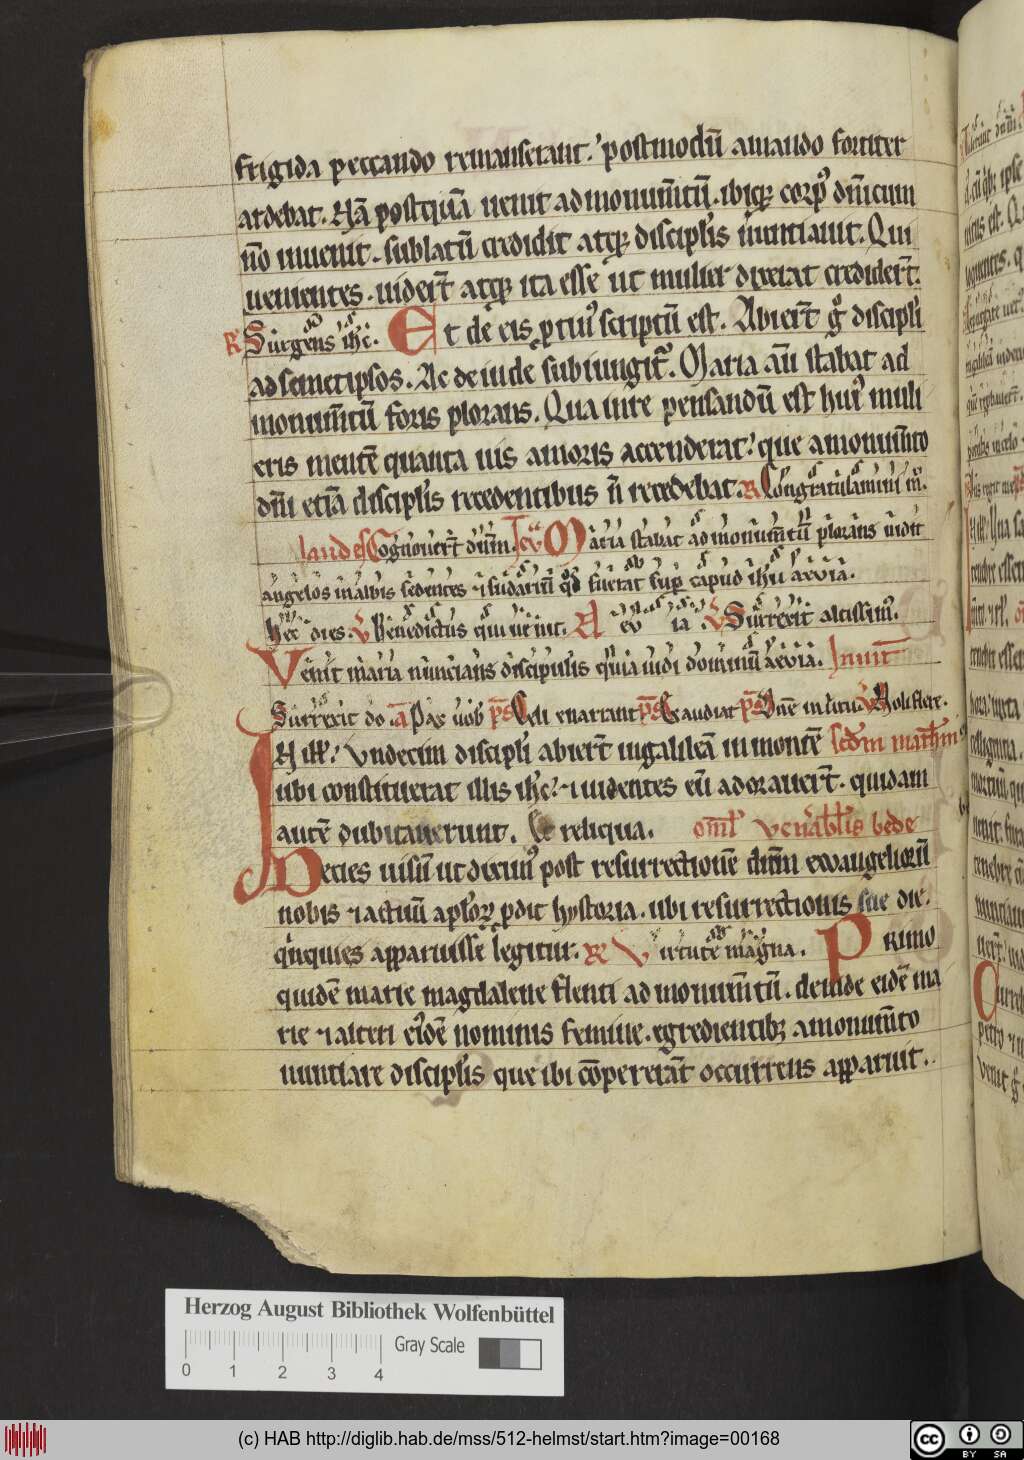 frigida peccando remanserant. postmodū amando fortiter
ardebat. Nā postquā uenit ad monumtū. ibiq; corp᾽ dnicum
nō inuenit. sublatū credidit atq; discipłis nuntiauit. Qui
uenientes. uider̄t atq; ita esse ut mulier dixerat credider̄t.
R Surgens ihc. Et de eis ptin᾽ scriptū est. Abier̄t g̊ discipłi
ad semetipsos. Ac deinde subiungit᾽. Maria aū stabat ad
monumtū foris plorans. Qua in re pensandū est hui᾽ muli
eris mentē quanta uis amoris accenderat. que a monumto
dni etiā discipłis recedentibus n̄ recedebat. R Congratulamini m.
laudes Cognouer̄t dnm. Ev Maria stabat ad monumtū plorans uidit
angelos in albis sedentes ⁊ sudariū qd fuerat sup capud ihu aevia.
hec dies V Benedictus qui uenit. A ev ia. V Surrexit altissim᾽.
Venit maria nuncians discipulis quia uidi dominū aevia. Inuit
Surrexit do. a Pax uob ps Celi enarrant ps Exaudiat ps Dne in uirtu V Noli flere.
In ill. Vndecim discipłi abier̄t in galileā in montē scdm mathm
ubi constituerat illis ihc. ⁊ uidentes eū adorauer̄t. quidam
autē dubitauerunt. Et reliqua. omł venabłis bede
Decies uisū ut dixim᾽ post resurrectionē dnm ewangeliorū
nobis ⁊ actuū apłoꝝ pdit hystoria. ubi resurrectionis sue die.
qnquies apparuisse legitur. R Virtute magna. Primo
quidē marie magdalene flenti ad monumtū. deinde eidē ma
rie ⁊ alteri ei᾽dē nominis femine. egredientib; a monumto
nuntiare discipłis que ibi cōpererāt occurrens apparuit.
Herzog August Bibliothek Wolfenbüttel
Gray Scale
0 1 2 3 4
(c) HAB http://diglib.hab.de/mss/512-helmst/start.htm?image=00168
cc BY SA